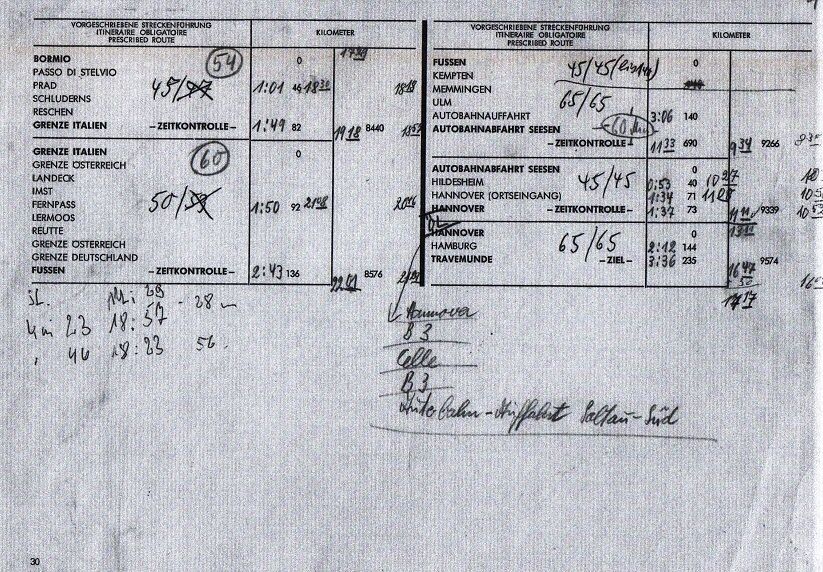 VORGESCHRIEBENE STRECKENFÜHRUNG
ITINERAIRE OBLIGATOIRE
PRESCRIBED ROUTE
KILOMETER
BORMIO 54 0
PASSO DI STELVIO
PRAD 45/ 1:01
SCHLUDERNS
RESCHEN
GRENZE ITALIEN –ZEITKONTROLLE– 1:49 82 1918 8440
GRENZE ITALIEN 60 0
GRENZE ÖSTERREICH
LANDECK
IMST 50/
FERNPASS 1:50 92
LERMOOS
REUTTE
GRENZE ÖSTERREICH
GRENZE DEUTSCHLAND
FUSSEN –ZEITKONTROLLE– 2:43 136 2201 8576
18:57 - 28
km 23
46 18:23 56
30
VORGESCHRIEBENE STRECKENFÜHRUNG
ITINERAIRE OBLIGATOIRE
PRESCRIBED ROUTE
KILOMETER
FUSSEN 45/45 0
KEMPTEN
MEMMINGEN
ULM 65/65
AUTOBAHNAUFFAHRT 3:06 140
AUTOBAHNABFAHRT SEESEN
–ZEITKONTROLLE– 1133 690 934 9266
AUTOBAHNABFAHRT SEESEN 0
HILDESHEIM 45/45 0:53 40 1027
HANNOVER (ORTSEINGANG) 1:34 71
HANNOVER –ZEITKONTROLLE– 1:37 73 1111 9339
HANNOVER 0
HAMBURG 65/65 2:12 144
TRAVEMUNDE –ZIEL– 3:36 235 1647 9574
50
1717
Hannover
B3
Celle
B3
Autobahn-Auffahrt Soltau-Süd